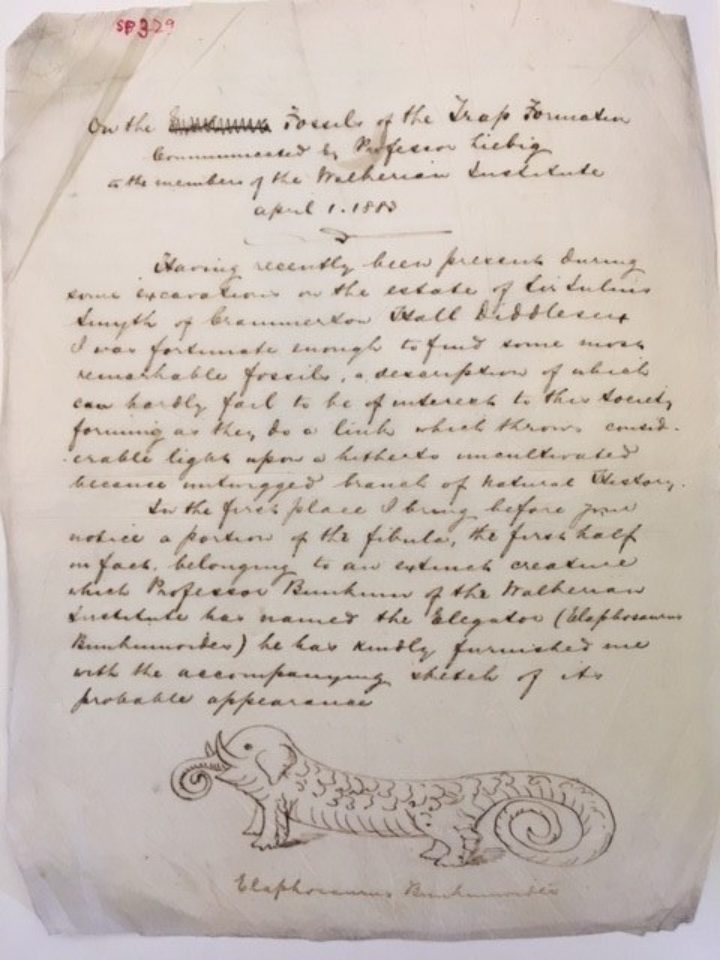 SP 329
On the Fossils of the Trap Formation
Communicated by Professor Liebig
to the members of the Walherian Institute
April 1. 1883
Having recently been present during
some excavations on the estate of Sir Julius
Smyth of Crammerton Hall Diddlesex
I was fortunate enough to find some most
remarkable fossils, a description of which
can hardly fail to be of interest to this Society
forming as they do a link which throws consid-
erable light upon a hitherto uncultivated
because untrugged branch of Natural History.
In the first place I bring before your
notice a portion of the fibula, the first half
in fact, belonging to an extinct creature
which Professor Bunkum of the Walherian
Institute has named the Elegator (Elaphosaurus
Bunkumoides) he has kindly furnished me
with the accompanying sketch of its
probable appearance
Elaphosaurus Bunkumoides